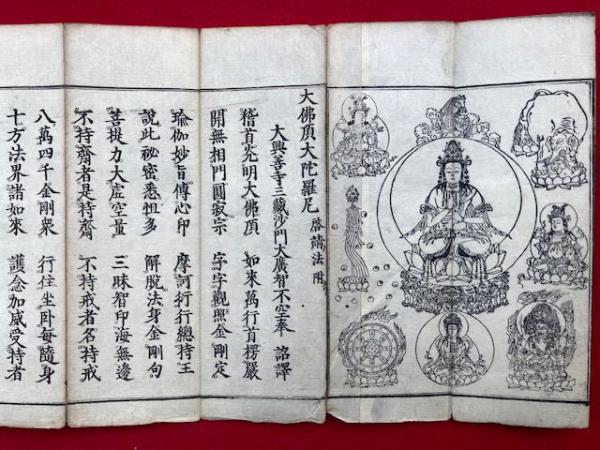 大佛頂大陀羅尼 啓請法附
大興善寺三藏沙門大廣智不空奉 詔譯
稽首光明大佛頂 如來萬行首楞嚴
開無相門圓寂宗 字字觀照金剛定
瑜伽妙旨傳心印 摩訶衍行總持王
說此祕密悉怛多 解脫法身金剛句
菩提力大虛空量 三昧智印海無邊
不持齋者是持齋 不持戒者名持戒
八萬四千金剛衆 行住坐臥每隨身
十方法界諸如來 護念加威受持者